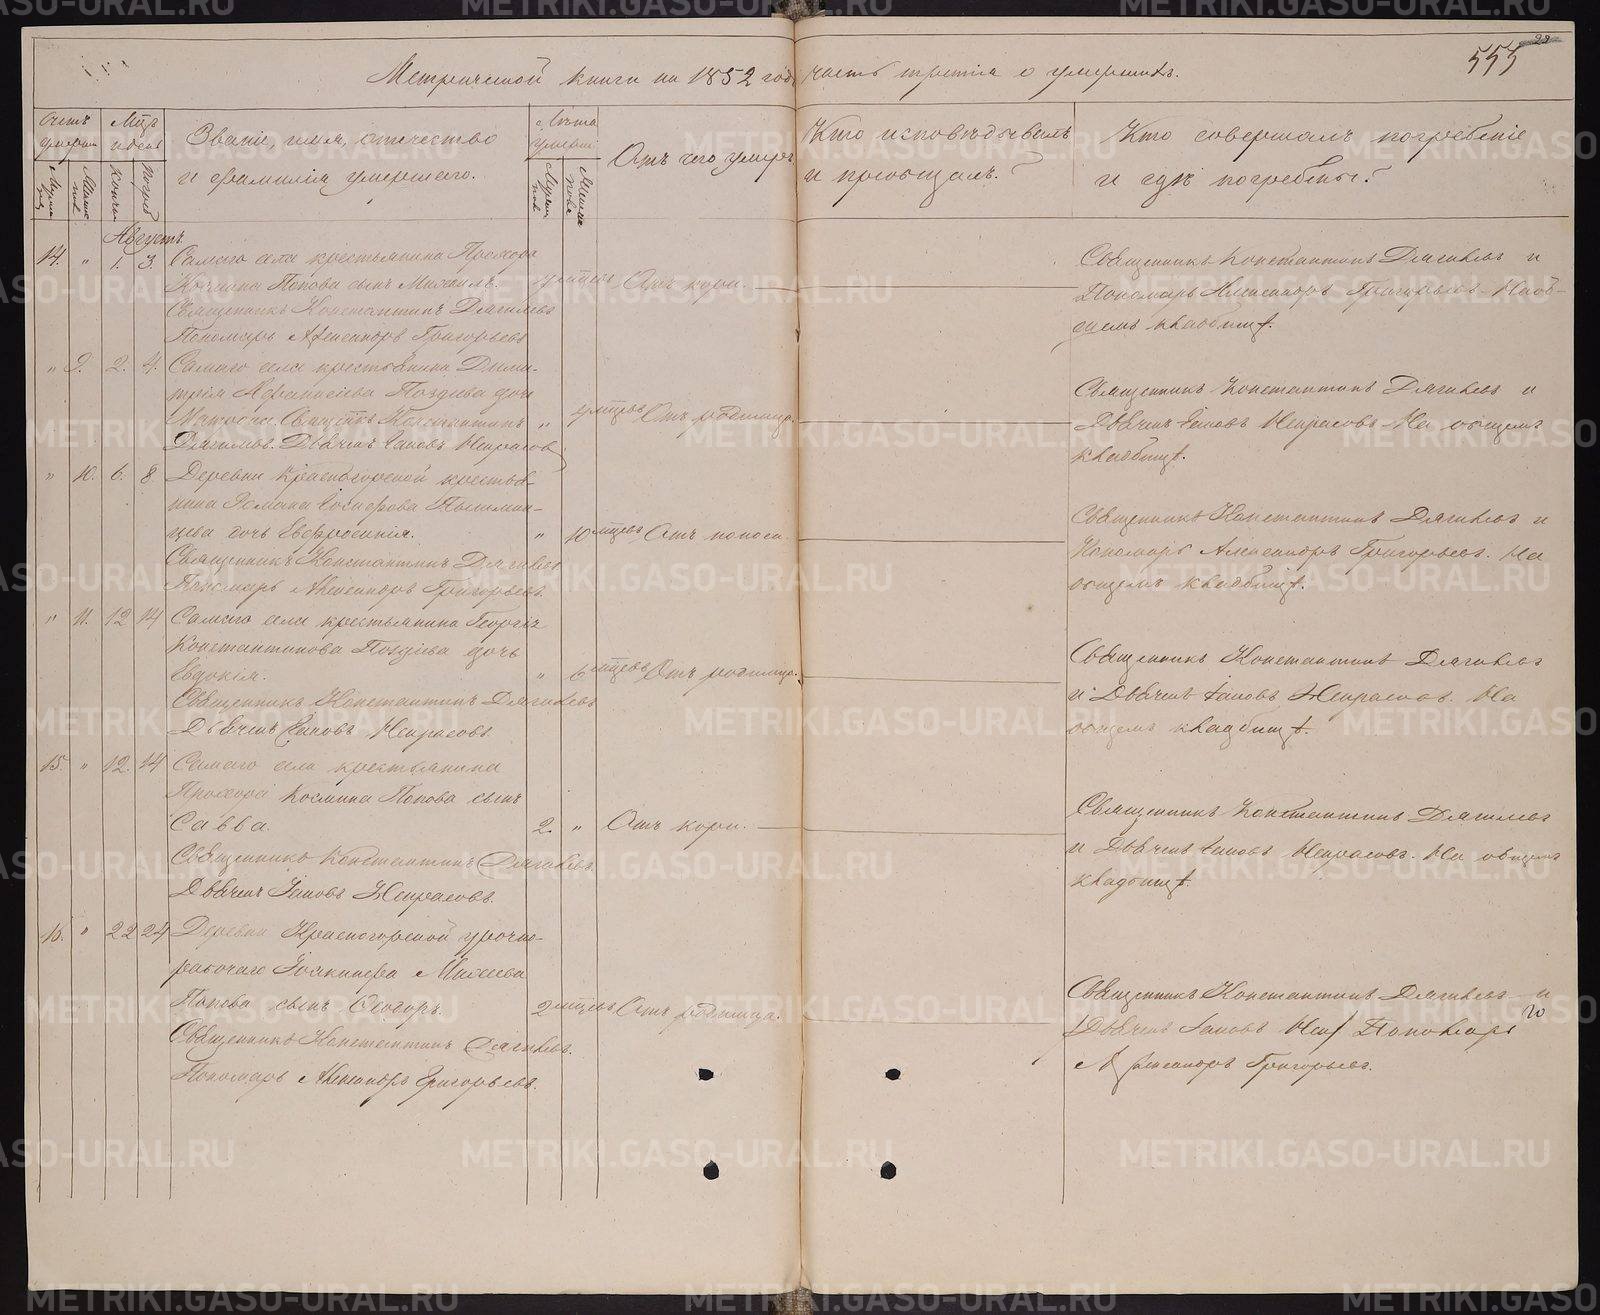 555
29
Метрической книги на 1852 годъ часть третія о умершихъ.
Счетъ умерш.
Мцъ и день
Званіе, имя, отчество и фамилія умершаго.
Лѣта умерш.
Отъ чего умеръ
Кто исповѣдывалъ и пріобщалъ?
Кто совершалъ погребеніе и гдѣ погребены?
Августъ.
14. " 1. 3. Самаго села крестьянина Прохора
Космина Попова сынъ Михаилъ. Отъ кори.
Священникъ Константинъ Дягилевъ
Пономарь Александръ Григорьевъ
Священникъ Константинъ Дягилевъ и
Пономарь Александръ Григорьевъ На об-
щемъ кладбищѣ.
" 9. 2. 4. Самаго села крестьянина Дими-
трія Поздѣева дочь
Священкъ Константинъ " мѣсцевъ Отъ родимца.
Дягилевъ. Дьячекъ Іаковъ Некрасовъ
Священникъ Константинъ Дягилевъ и
Дьячекъ Іаковъ Некрасовъ На общемъ
кладбищѣ.
" 10. 6. 8 Деревни Красногорской крестья-
нина Романа
дочь Евфросинія. " 10 мѣсцевъ Отъ поноса.
Священникъ Константинъ Дягилевъ
Пономарь Александръ Григорьевъ.
Священникъ Константинъ Дягилевъ и
Пономарь Александръ Григорьевъ. На
общемъ кладбищѣ.
" 11. 12 14 Самаго села крестьянина Георгія
Константинова Поздѣева дочь
Евдокія. " 6 мѣсцевъ Отъ родимца.
Священникъ Константинъ Дягилевъ
Дьячекъ Іаковъ Некрасовъ.
Священникъ Константинъ Дягилевъ
и Дьячекъ Іаковъ Некрасовъ. На
общемъ кладбищѣ.
15. " 12. 14 Самаго села крестьянина
Прохора Космина Попова сынъ
Савва. 2. " Отъ кори.
Священникъ Константинъ Дягилевъ.
Дьячекъ Іаковъ Некрасовъ.
Священникъ Константинъ Дягилевъ
и Дьячекъ Іаковъ Некрасовъ. На общемъ
кладбищѣ.
16. " 22 24 Деревни Красногорской урочно-
рабочаго Іоакинфа Михеева
Попова сынъ Ѳеодоръ. 2 мѣсцевъ Отъ родимца.
Священникъ Константинъ Дягилевъ.
Пономарь Александръ Григорьевъ.
Священникъ Константинъ Дягилевъ и
Дьячекъ Іаковъ Пономарь
Александръ Григорьевъ.
METRIKI.GASO-URAL.RU